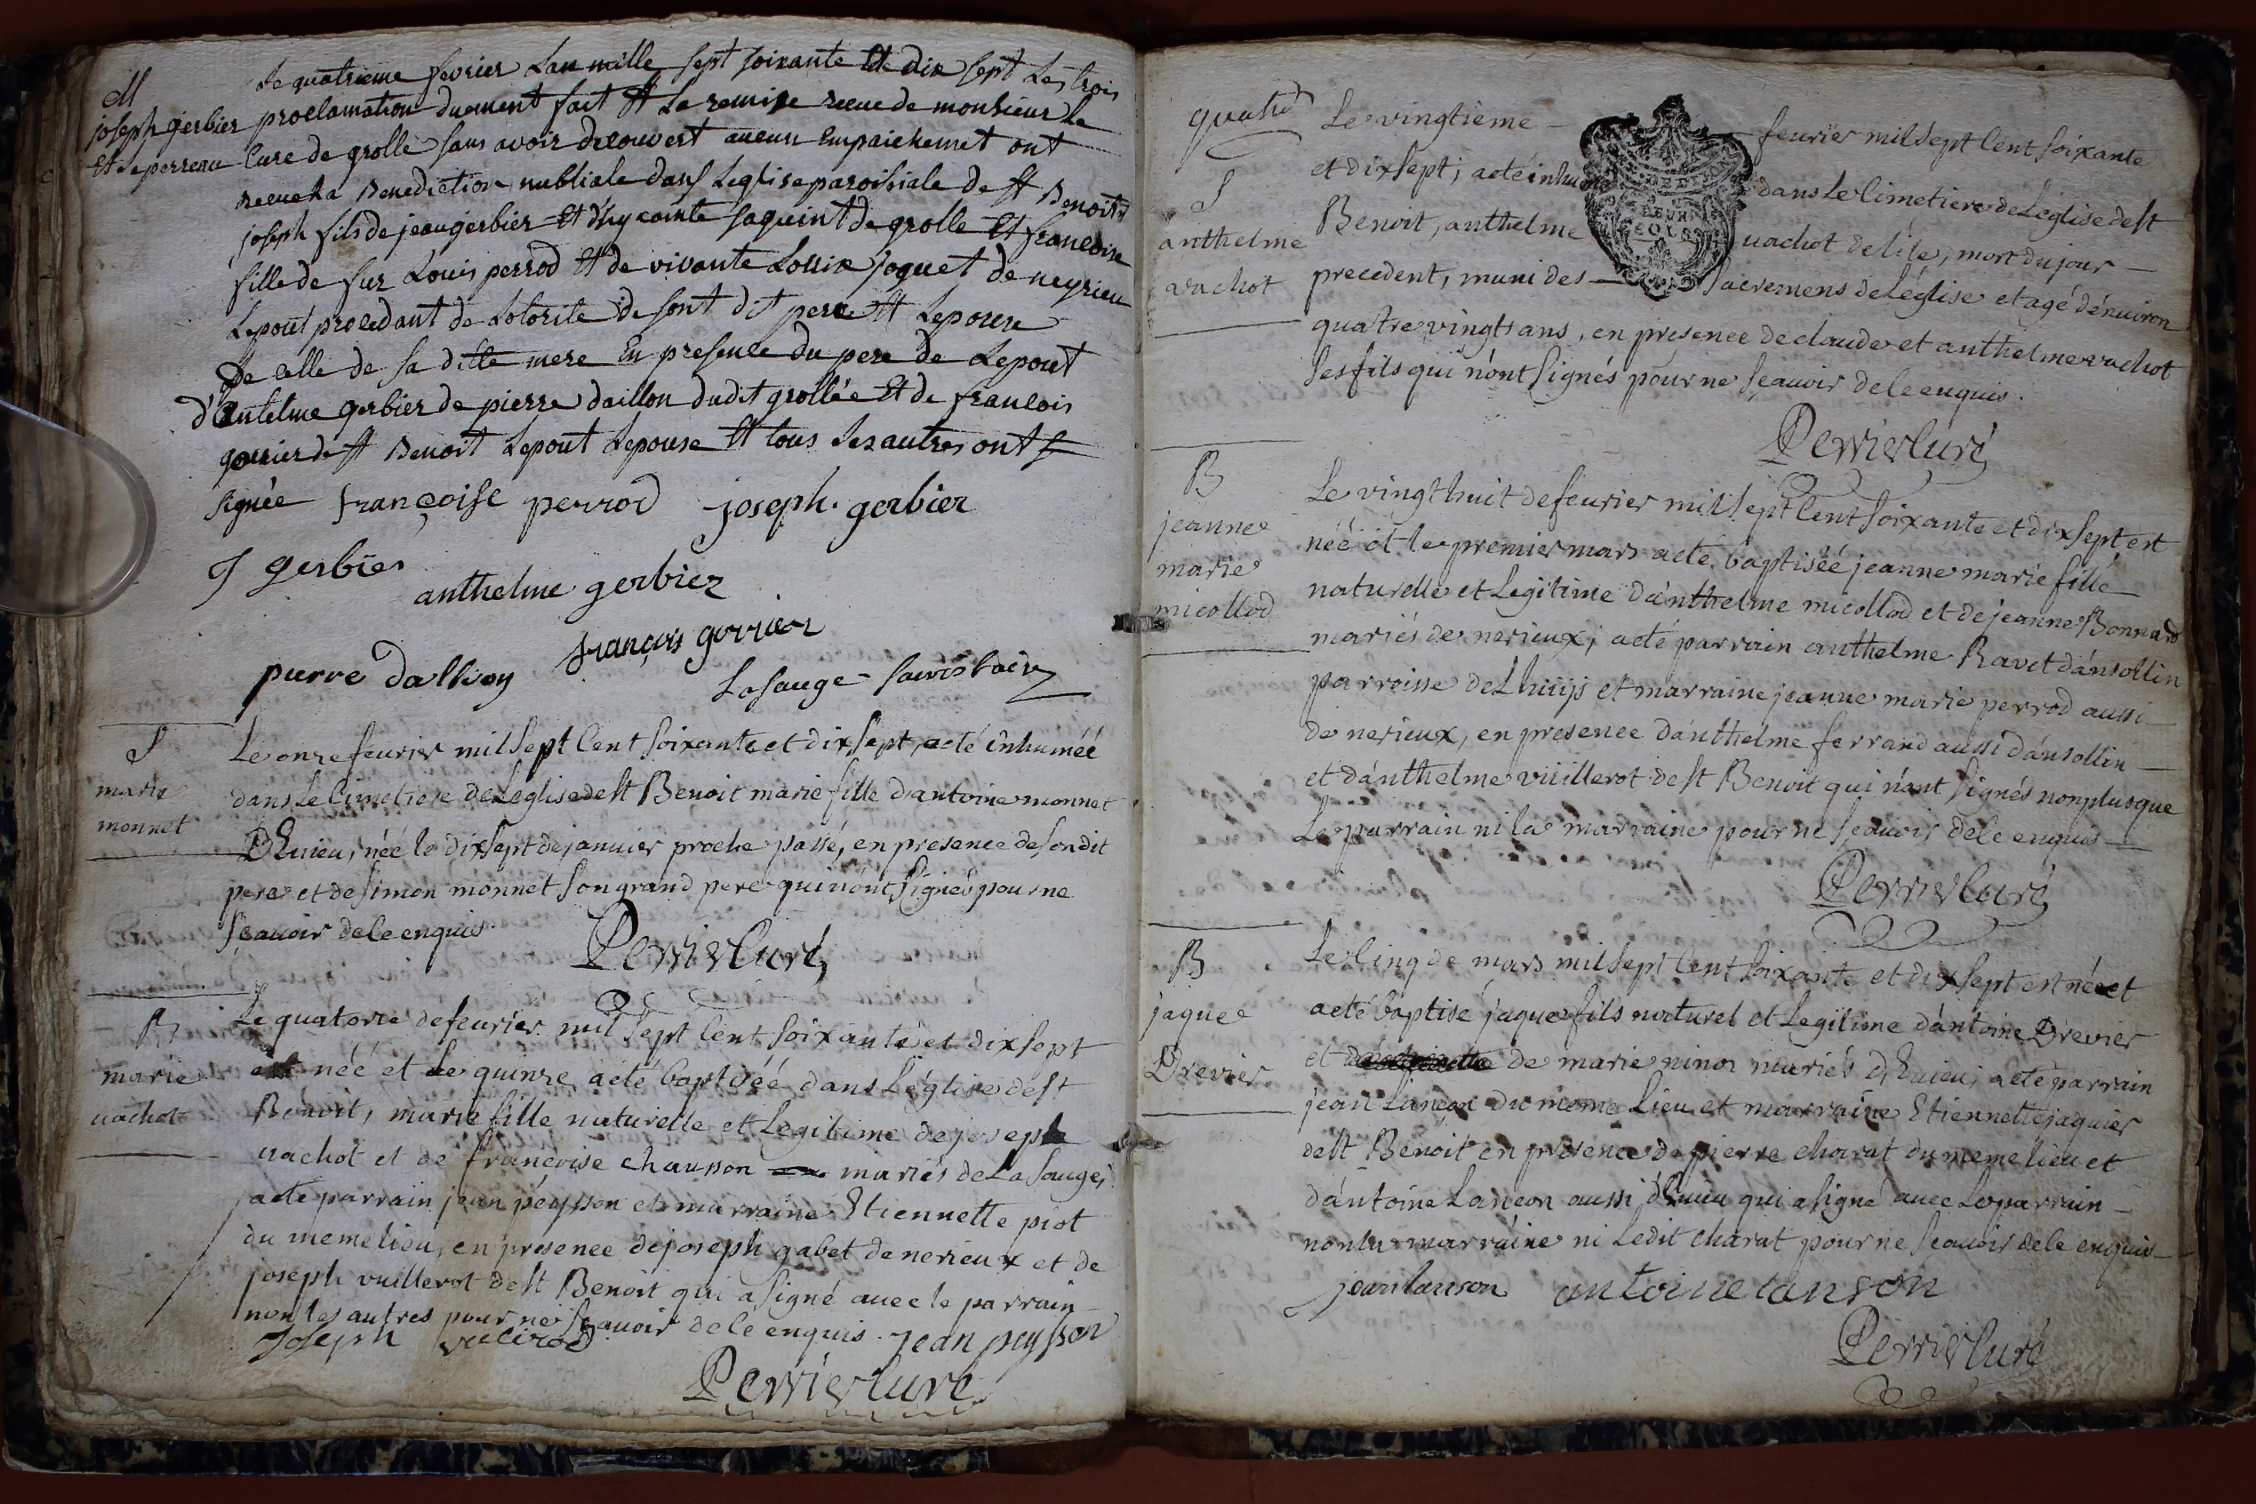 M
joseph gerbier
Et
perreau
Le quatrieme fevrier Lan mille sept soixante Et dix sept Les trois
proclamation duement fait Et La remise recue de monsieur Le
Cure de grolle sans avoir decouvert aucun Empaichemet ont
receue La Benediction nubtiale dans Leglise paroissiale de st Benoit
joseph fils de jean gerbier Et d'hycointe saguint de grolle Et francoise
fille de fur Louis perrod Et de vivante Lossie joquet de neyrieu
Lepout procedant de Lotorite de sont dit pere Et Lepouse
De celle de sa ditte mere En presence du pere de Lepout
d'Antelme gerbier de pierre daillon dudit grollée Et de francois
gourier de st Benoit Lepout Lepouse Et tous les autres ont
signée françoise perrod joseph. gerbier
J gerbier
anthelme gerbier
françois gorrier
pierre dallion
Lasauge
S
marie
monnet
Le onze feurier mil sept Cent soixante et dix sept, acté inhuméé
dans Le Cimetiere de Leglise de st Benoit marie fille d'antoine monnet
D'Euieu, néé le dix sept de januier proche passé, en presence de son dit
pere et de simon monnet son grand pere qui n'ont signés pour ne
sçauoir de ce enquis.
Perrier Curé
B
marie
uachot
Le quatorze de feurier mil sept Cent soixante et dix sept
est néé et Le quinze acté baptiséé dans L'église de st
Benoit, marie fille naturelle et Legitime de joseph
uachot et de françoise chauson mariés de La sauge,
acté parrain jean peysson et marraine Etiennette piot
du meme lieu, en presence de joseph gabet de nerieux et de
joseph vuillerot de st Benoit qui a signé auec le parrain
non les autres pour ne sçauoir de ce enquis. jean peysson
Joseph
Perrier Curé
S
anthelme
vachot
Le vingtieme feurier mil sept Cent soixante
et dix sept; acté inhumé dans Le Cimetiere de Leglise de st
Benoit, anthelme uachot de l'ile, mort du jour
precedent, muni des sacremens de L'église et agé d'énuiron
quatre vingt ans, en presence de claude et anthelme vachot
ses fils qui n'ónt signés pour ne sçauoir de ce enquis.
Perrier Curé
B
jeanne
marie
micollod
Le vingt huit de feurier mil sept Cent soixante et dix sept est
néé et le premier mars acté baptiséé jeanne marie fille
naturelle et Legitime d'ánthelme micollod et de jeanne Bonnard
mariés de nerieux; acté parrain anthelme Ravet d'ánsollin
parroisse de Lhuijs et marraine jeanne marie perrod aussi
de nerieux, en presence d'ánthelme ferrand aussi d'ánsollin
et d'ánthelme vuillerot de st Benoit qui n'ont signés non plus que
Le parrain ni la marraine pour ne sçauoir de ce enquis
Perrier Curé
B
jaque
Drevier
Le Cinq de mars mil sept Cent soixante et dix sept est né et
acté baptisé jaque fils naturel et Legitime d'ántoine Drevier
et de marie ninoz mariés d'Euieu; acté parrain
jean Lançon du meme Lieu et marraine Etiennette jaquier
de st Benoit en presence de pierre charat du meme lieu et
d'ántoine Lançon aussi d'Euieu qui a signé auec Le parrain
non la marraine ni Ledit charat pour ne sçauoir de ce enquis
jean lanson antoine lanson
Perrier Curé